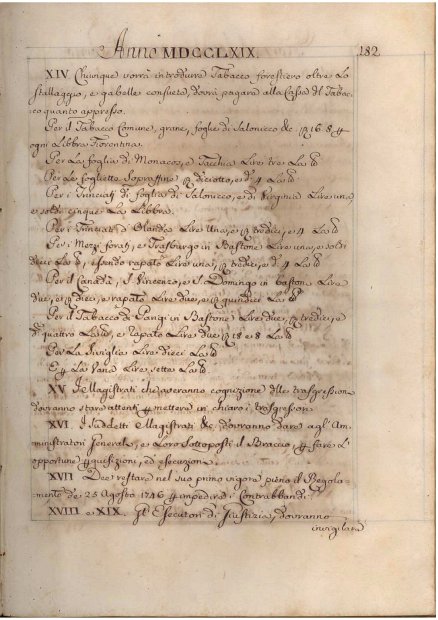 Anno MDCCLXIX. 182
XIV Chiunque vorrà introdurre Tabacco forestiero oltre Lo
stallaggio, e gabelle consuete, dovrà pagare alla Cassa del Tabac-
co quanto appresso.
Per il Tabacco Comune, grane, foglie di Salonicco &c 16. 8
ogni Libbra fiorentina.
Per La foglia di Monacos, e Tacchia Lire tre La
Per Le fogliette Sopraffine diciotto, e d. 4 La
Per i Trinciati di foglia di Salonicco, e di Virginia Lire una,
e soldi cinque La Libbra.
Per i Trinciati d'Olanda Lire una, e tredici, e 4 La
Per i Mezzi forati, e Strasburgo in Bastone Lire una, e soldi
dieci La, essendo rapato Lire una, tredici, e d. 4 La
Per il Canadà, S. Vincenzo, e S. Domingo in bastone Lire
due, e dieci, e rapato Lire due, e quindici La
Per il Tabacco di Parigi in Bastone Lire due, tredici, e
d. quattro La, e rapato Lire due 18 e 8 La
Per La Siviglia Lire dieci La
E La Vana Lire sette La
XV. I Magistrati che averanno cognizione delle trasgressioni
dovranno stare attenti mettere in chiaro i trasgressori
XVI. I suddetti Magistrati &c. dovranno dare agl'Am-
ministratori Generali, e Loro Sottoposti il Braccio, fare L'
opportune perquisizioni, ed esecuzioni
XVII Dee restare nel suo primo vigore pieno il Regola-
mento de 25 Agosto 1746 impedire i Contrabbandi.
XVIII e XIX. Gl'Esecutori di Giustizia, dovranno
invigilare